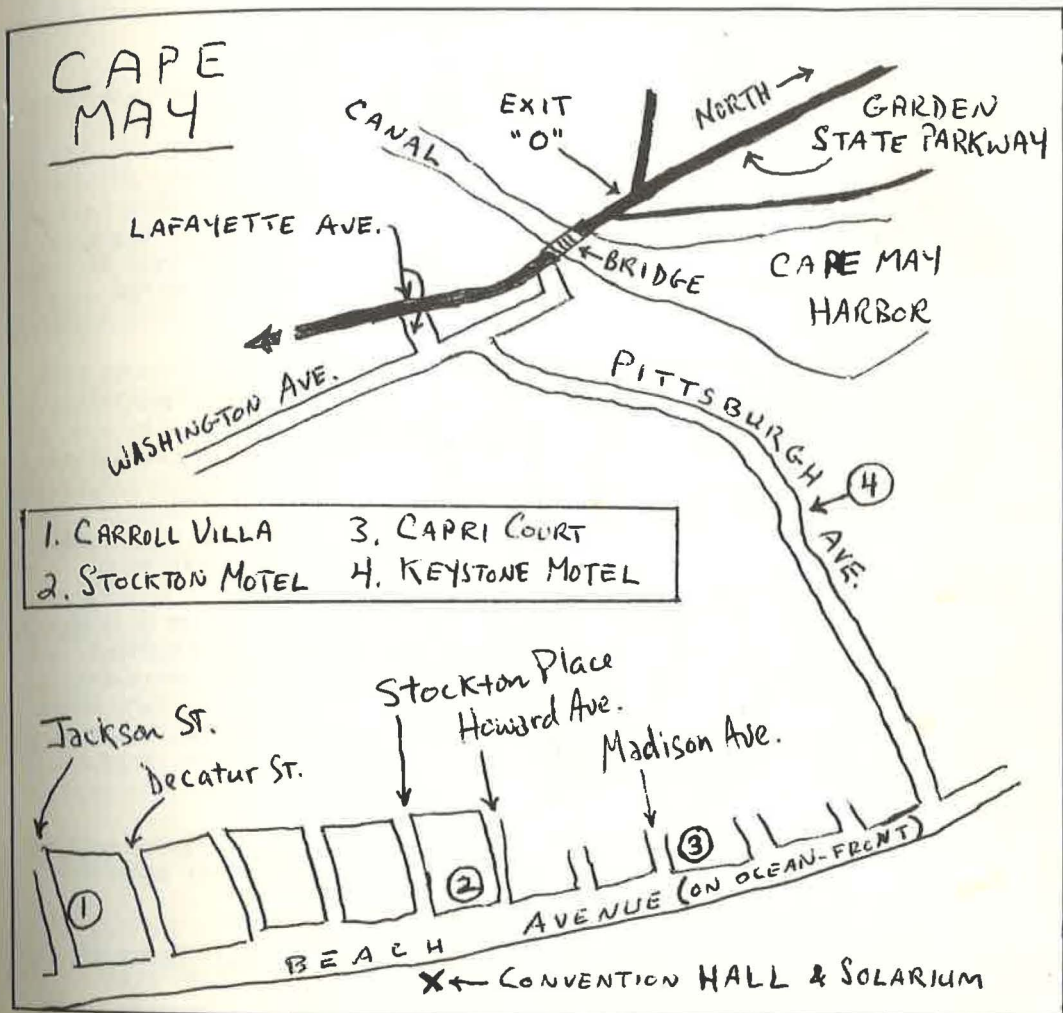 CAPE
MAY
EXIT
"O"
NORTH
CANAL
GARDEN
STATE PARKWAY
LAFAYETTE AVE.
BRIDGE
CAPE MAY
HARBOR
WASHINGTON AVE.
PITTSBURGH AVE.
4
1. CARROLL VILLA
2. STOCKTON MOTEL
3. CAPRI COURT
4. KEYSTONE MOTEL
Stockton Place
Howard Ave.
Jackson St.
Madison Ave.
Decatur St.
1
2
3
BEACH AVENUE (ON OCEAN-FRONT)
X CONVENTION HALL & SOLARIUM